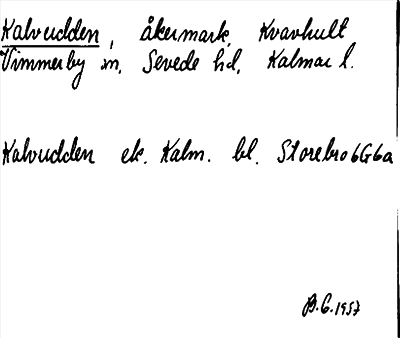 Kalvudden, åkermark, Kvavhult
Vimmerby sn, Sevede hd, Kalmar l.
Kalvudden ek. Kalm. bl. Storebro 6G6a
B.G. 1957